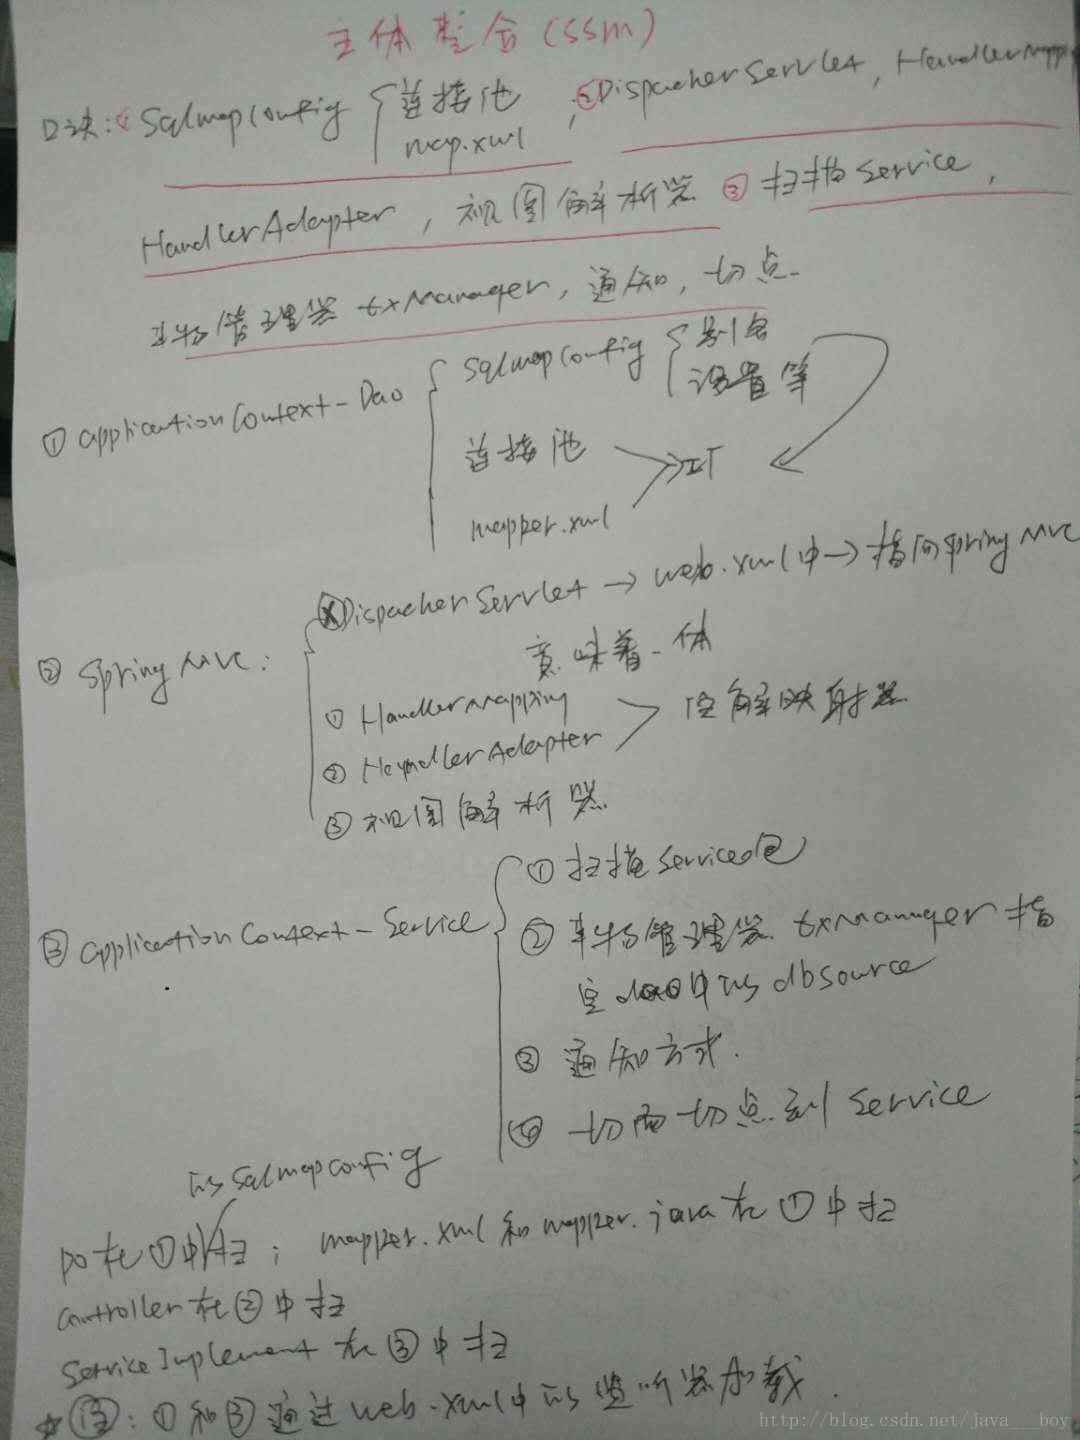 主体整合(SSM)
口诀:① SqlmapConfig { 连接池 , ② DispacherServlet, HandlerMapp
map.xml
HandlerAdapter, 视图解析器 ③ 扫描service,
事物管理器 txManager, 通知, 切点.
① applicationContext-Dao { SqlmapConfig { 别名
设置等
连接池 → IT
mapper.xml
② Spring MVC: { ⓧ DispacherServlet → web.xml中 → 指向Spring MVC
意味着一体
① HandlerMapping > 注解映射器
② HayndlerAdapter
③ 视图解析器
③ applicationContext-Service { ① 扫描service包
② 事物管理器 txManager 指
定dao中的dbsource
③ 通知方式.
④ 切面切点到 service
的Sqlmapconfig
po在①中扫; mapper.xml和mapper.java在①中扫
controller在②中扫
ServiceImplement在③中扫
☆注: ①和③通过web.xml中的监听器加载.
http://blog.csdn.net/java___boy